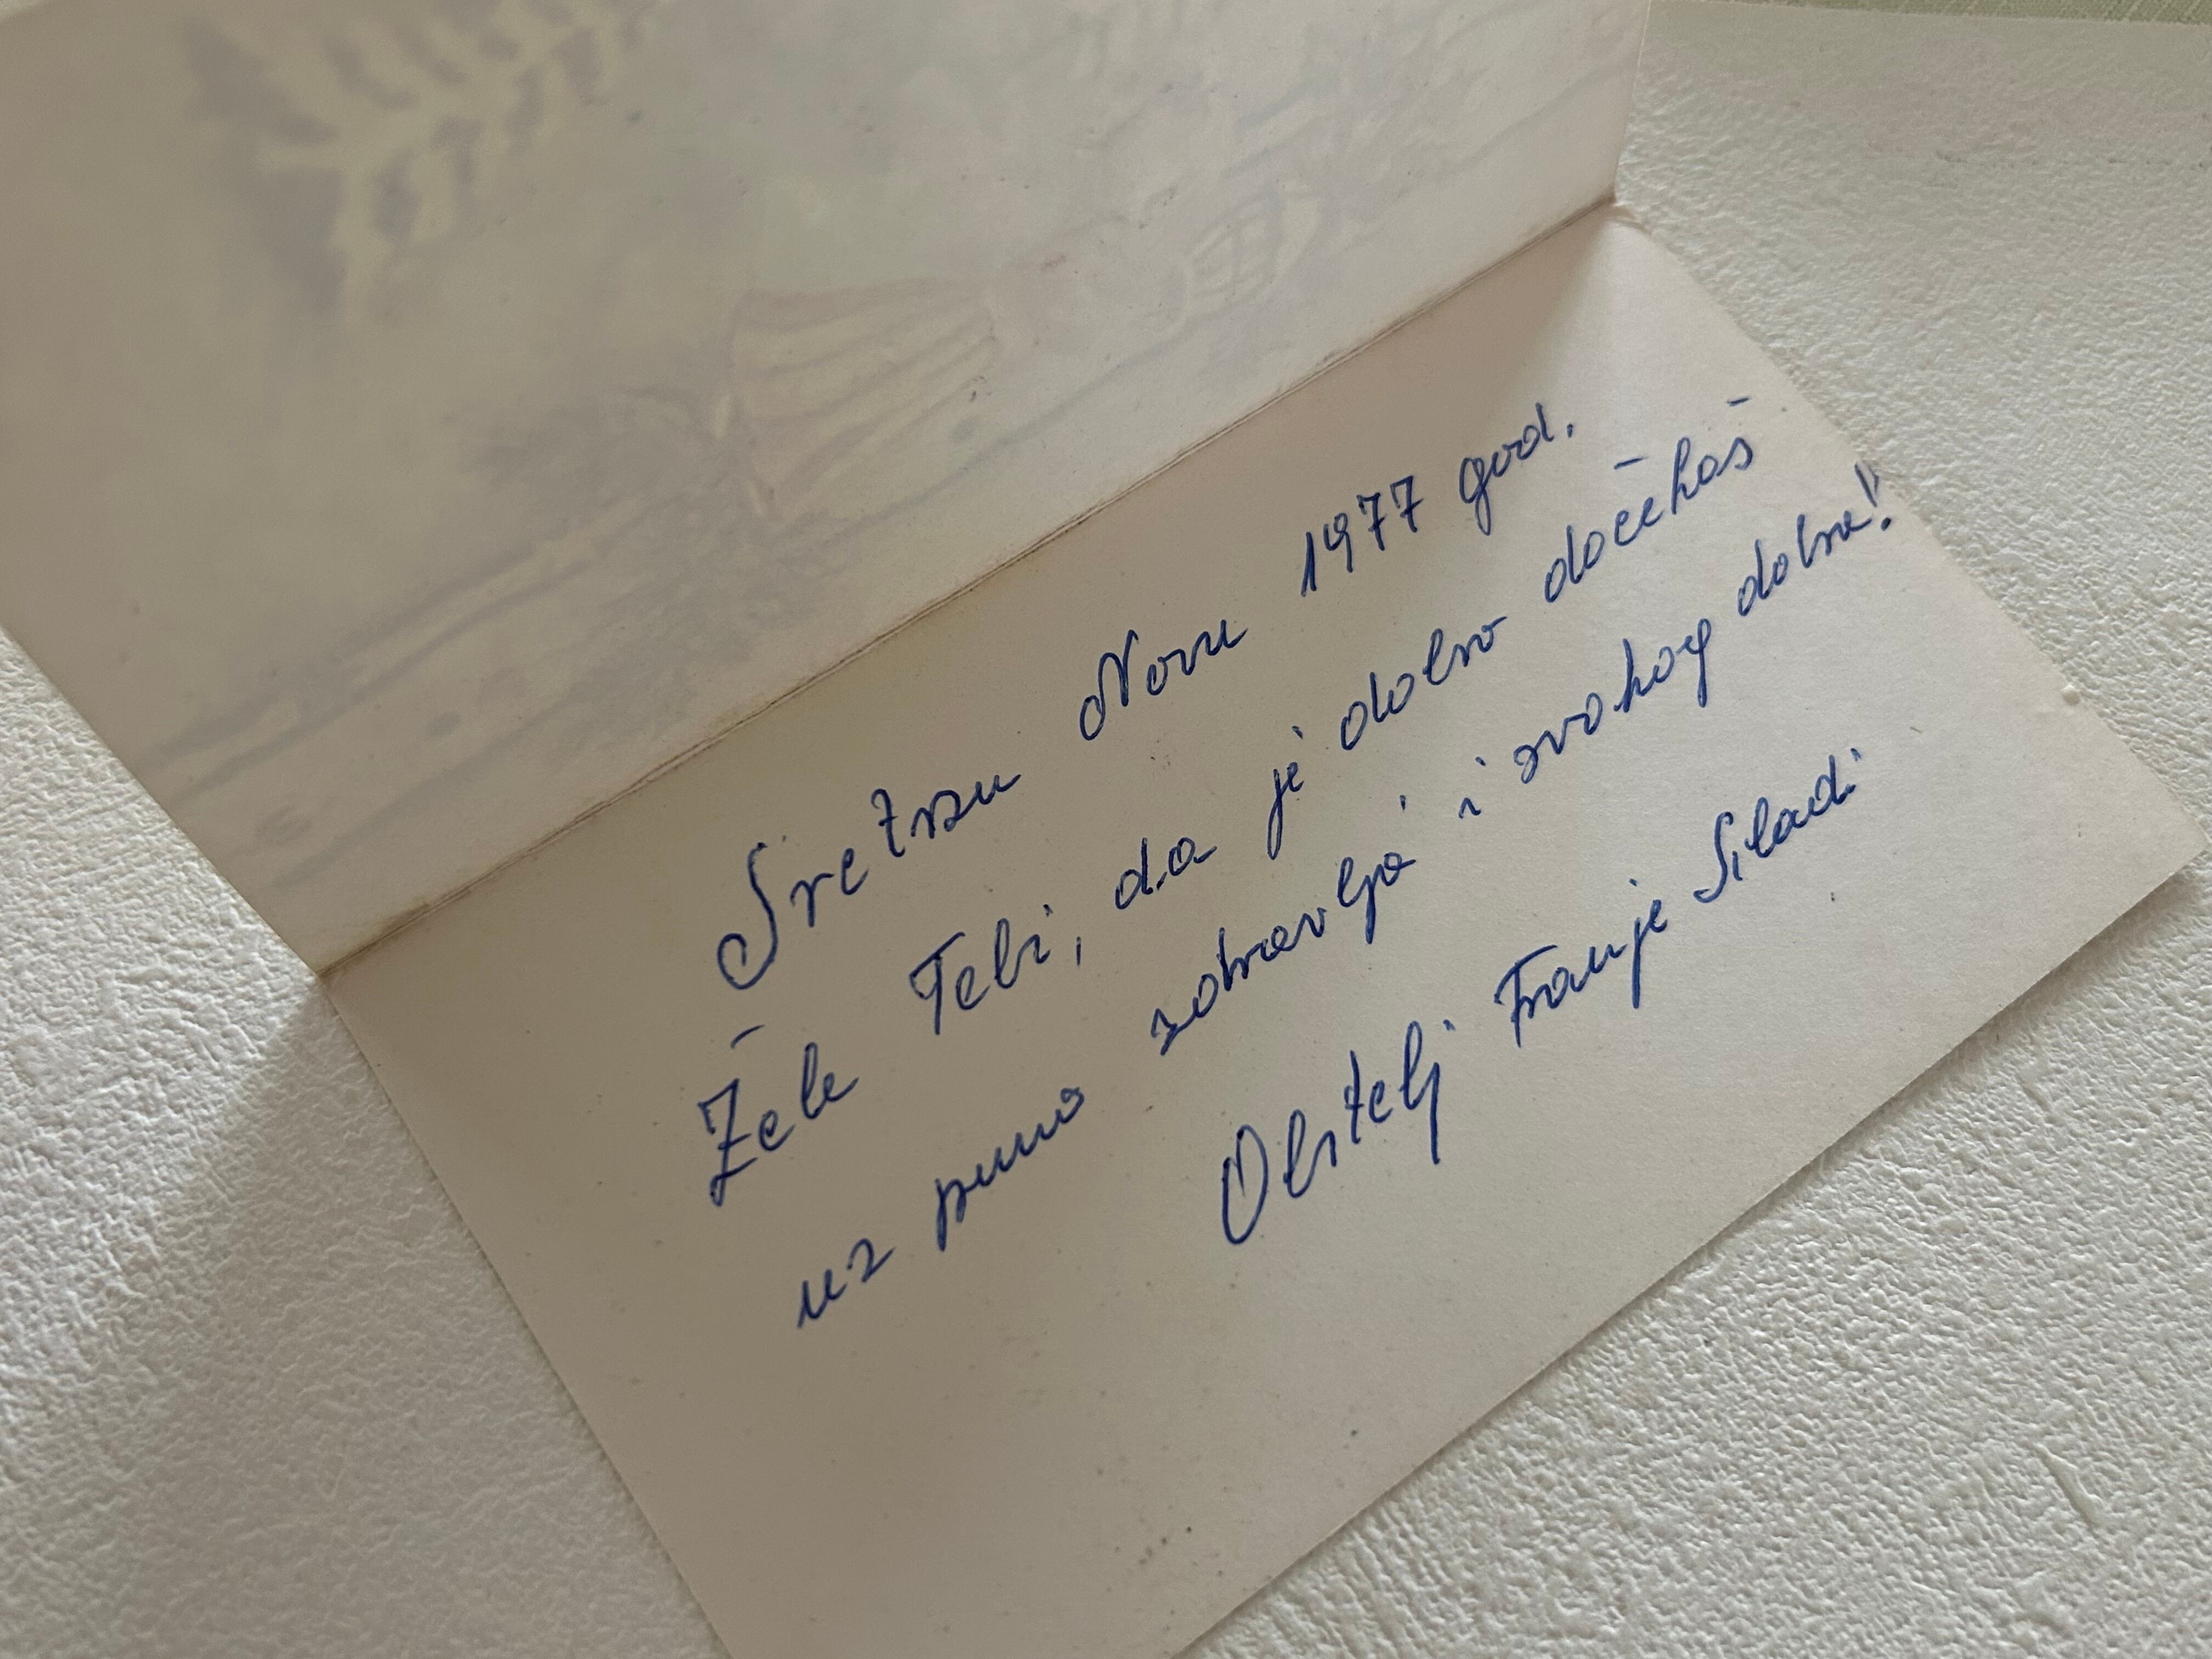 Sretnu Novu 1977 god.
Žele Tebi, da je dobro dočekaš
uz puno zdravlja i svakog dobra!
Obitelj Franje Siladi